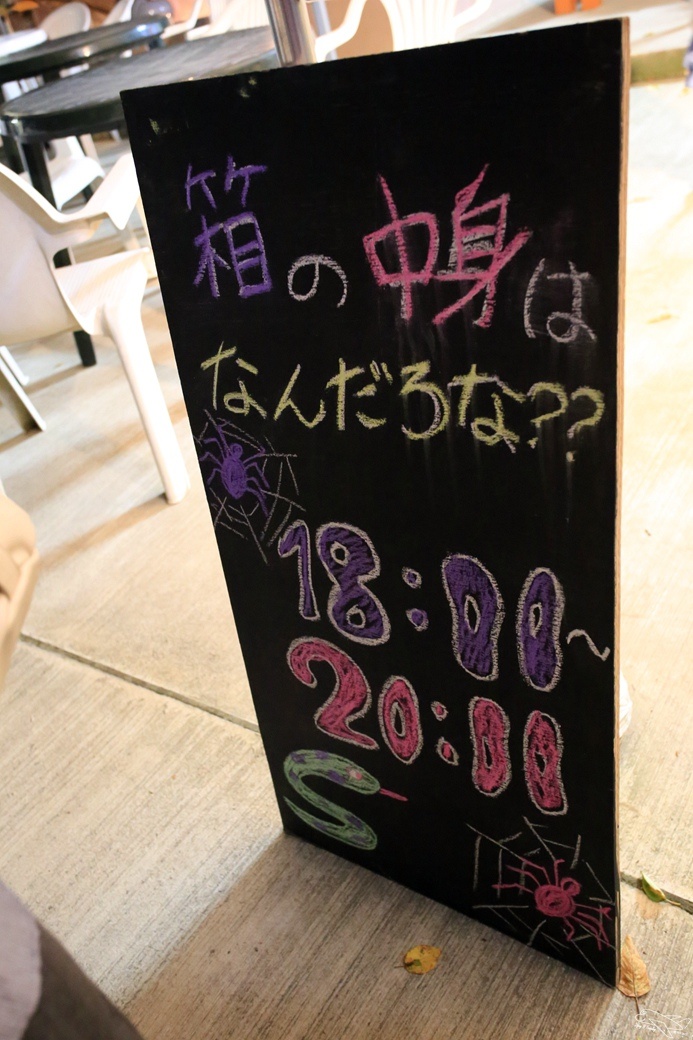 箱の中身は
なんだろな??
18:00~
20:00